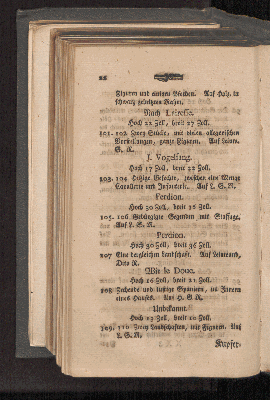 22
Figuren und einigen Bäumen. Auf Holz, in
schwarz gebeizten Rahm.
Nach Lairesse.
Hoch 22 Zoll, breit 27 Zoll.
101. 102 Zwey Stücke, mit vielen allegorischen
Vorstellungen, ganze Figuren. Auf Leinw.
G. R.
J. Vogelsang.
Hoch 17 Zoll, breit 22 Zoll.
103. 104 Hitzige Gefechte, zwischen eine Menge
Cavallerie und Infanterie. Auf L. S. R.
Ferdion.
Hoch 30 Zoll, breit 26 Zoll.
105. 106 Gebürgigte Gegenden mit Staffage.
Auf L. S. R.
Perdion.
Hoch 30 Zoll, breit 36 Zoll.
107 Eine dergleichen Landschaft. Auf Leinwand,
Dito R.
Mit le Doue.
Hoch 16 Zoll, breit 21 Zoll.
108 Zechende und lustige Spanier, im Innern
eines Hauses. Auf H. G. R.
Unbekannt.
Hoch 13 Zoll, breit 20 Zoll.
109. 110 Zwey Landschaften, mit Figuren. Auf
L. S. R.
Kupfer-